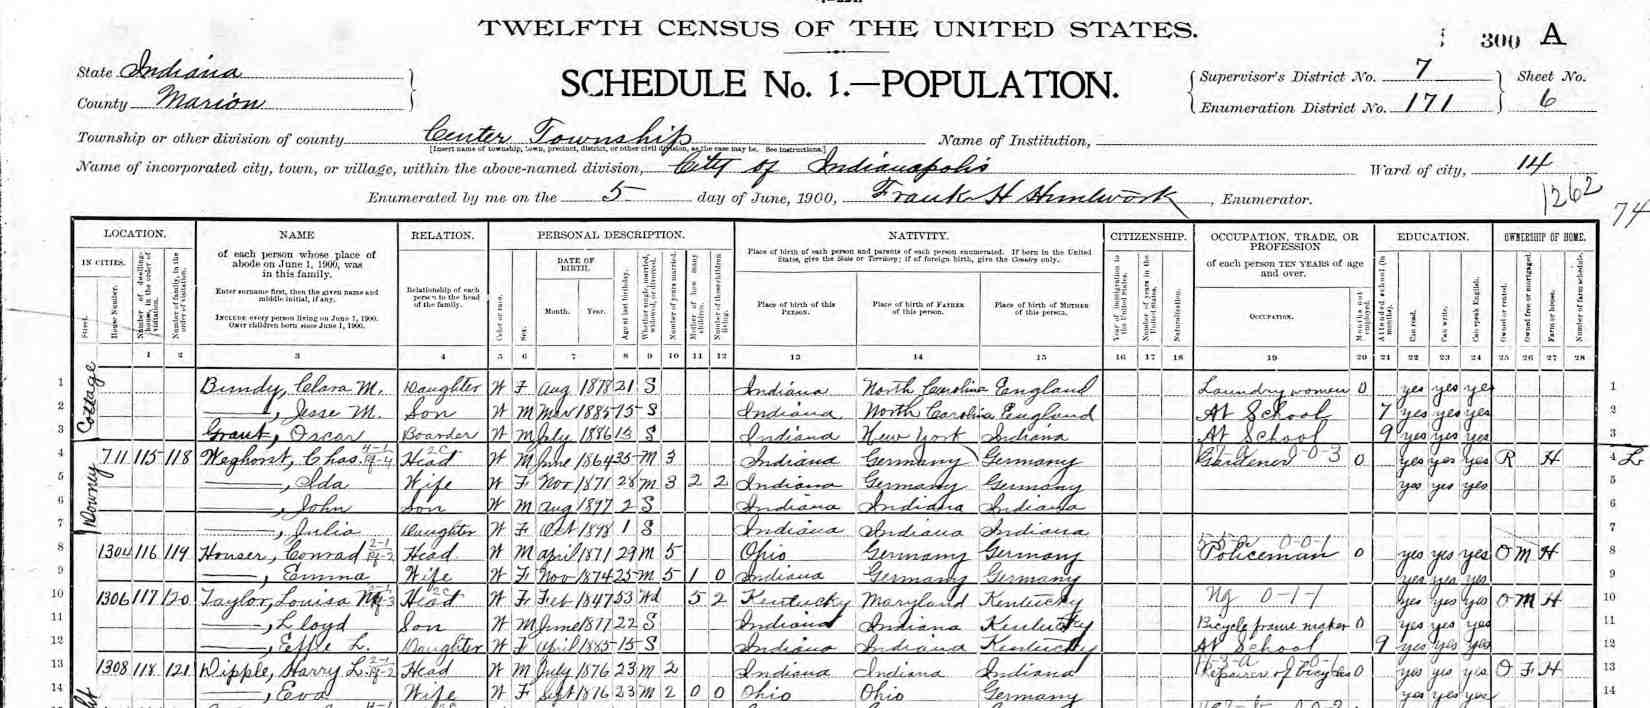 TWELFTH CENSUS OF THE UNITED STATES.
300 A
State Indiana
County Marion
SCHEDULE No. 1.—POPULATION.
Supervisor's District No. 7
Enumeration District No. 171
Sheet No. 6
Township or other division of county Center Township
[Insert name of township, town, precinct, district, or other civil division, as the case may be. See instructions.]
Name of Institution,
Name of incorporated city, town, or village, within the above-named division, City of Indianapolis
Ward of city, 14
Enumerated by me on the 5 day of June, 1900, Frank H , Enumerator.
1262
74
LOCATION. NAME RELATION. PERSONAL DESCRIPTION. NATIVITY. CITIZENSHIP. OCCUPATION, TRADE, OR PROFESSION EDUCATION. OWNERSHIP OF HOME.
IN CITIES.
Street.
House Number.
Number of dwelling-house, in the order of visitation.
Number of family, in the order of visitation.
of each person whose place of abode on June 1, 1900, was in this family.
Enter surname first, then the given name and middle initial, if any.
INCLUDE every person living on June 1, 1900.
OMIT children born since June 1, 1900.
Relationship of each person to the head of the family.
Color or race.
Sex.
DATE OF BIRTH.
Month. Year.
Age at last birthday.
Whether single, married, widowed, or divorced.
Number of years married.
Mother of how many children.
Number of these children living.
Place of birth of each person and parents of each person enumerated. If born in the United States, give the State or Territory; if of foreign birth, give the Country only.
Place of birth of this PERSON.
Place of birth of FATHER of this person.
Place of birth of MOTHER of this person.
Year of immigration to the United States.
Number of years in the United States.
Naturalization.
of each person TEN YEARS of age and over.
OCCUPATION.
Months not employed.
Attended school (in months).
Can read.
Can write.
Can speak English.
Owned or rented.
Owned free or mortgaged.
Farm or house.
Number of farm schedule.
1 2 3 4 5 6 7 8 9 10 11 12 13 14 15 16 17 18 19 20 21 22 23 24 25 26 27 28
Cottage
Downey
1 Bundy, Clara M. Daughter W F Aug 1878 21 S Indiana North Carolina England Laundry women 0 yes yes yes 1
2 —, Jesse M. Son W M Mar 1885 15 S Indiana North Carolina England At School 7 yes yes yes 2
3 Grant, Oscar Boarder W M July 1886 13 S Indiana New York Indiana At School 9 yes yes yes 3
4 711 115 118 Weghorst, Chas. Head W M June 1864 35 M 3 Indiana Germany Germany Gardener 0-0-3 0 yes yes yes R H 4 L
5 —, Ida Wife W F Nov 1871 28 M 3 2 2 Indiana Germany Germany yes yes yes 5
6 —, John Son W M Aug 1897 2 S Indiana Indiana Indiana 6
7 —, Julia Daughter W F Oct 1898 1 S Indiana Indiana Indiana 7
8 1304 116 119 Houser, Conrad Head W M April 1871 29 M 5 Ohio Germany Germany Policeman 0-0-1 0 yes yes yes O M H 8
9 —, Emma Wife W F Nov 1874 25 M 5 1 0 Indiana Germany Germany yes yes yes 9
10 1306 117 120 Taylor, Louisa Head W F Feb 1847 53 Wd 5 2 Kentucky Maryland Kentucky 0-1-1 yes yes yes O M H 10
11 —, Lloyd Son W M June 1877 22 S Indiana Indiana Kentucky Bicycle frame maker 0 yes yes yes 11
12 —, Effie L. Daughter W F April 1885 15 S Indiana Indiana Kentucky At School 9 yes yes yes 12
13 1308 118 121 Dipple, Harry L. Head W M July 1876 23 M 2 Indiana Indiana Indiana Repairer of bicycles 0 yes yes yes O F H 13
14 —, Eva Wife W F Sept 1876 23 M 2 0 0 Ohio Ohio Germany yes yes yes 14